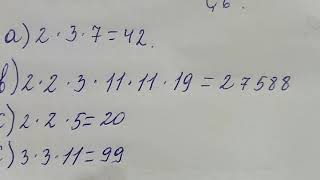 a) 2 · 3 · 7 = 42.
b) 2 · 2 · 3 · 11 · 11 · 19 = 27588
c) 2 · 2 · 5 = 20
c) 3 · 3 · 11 = 99